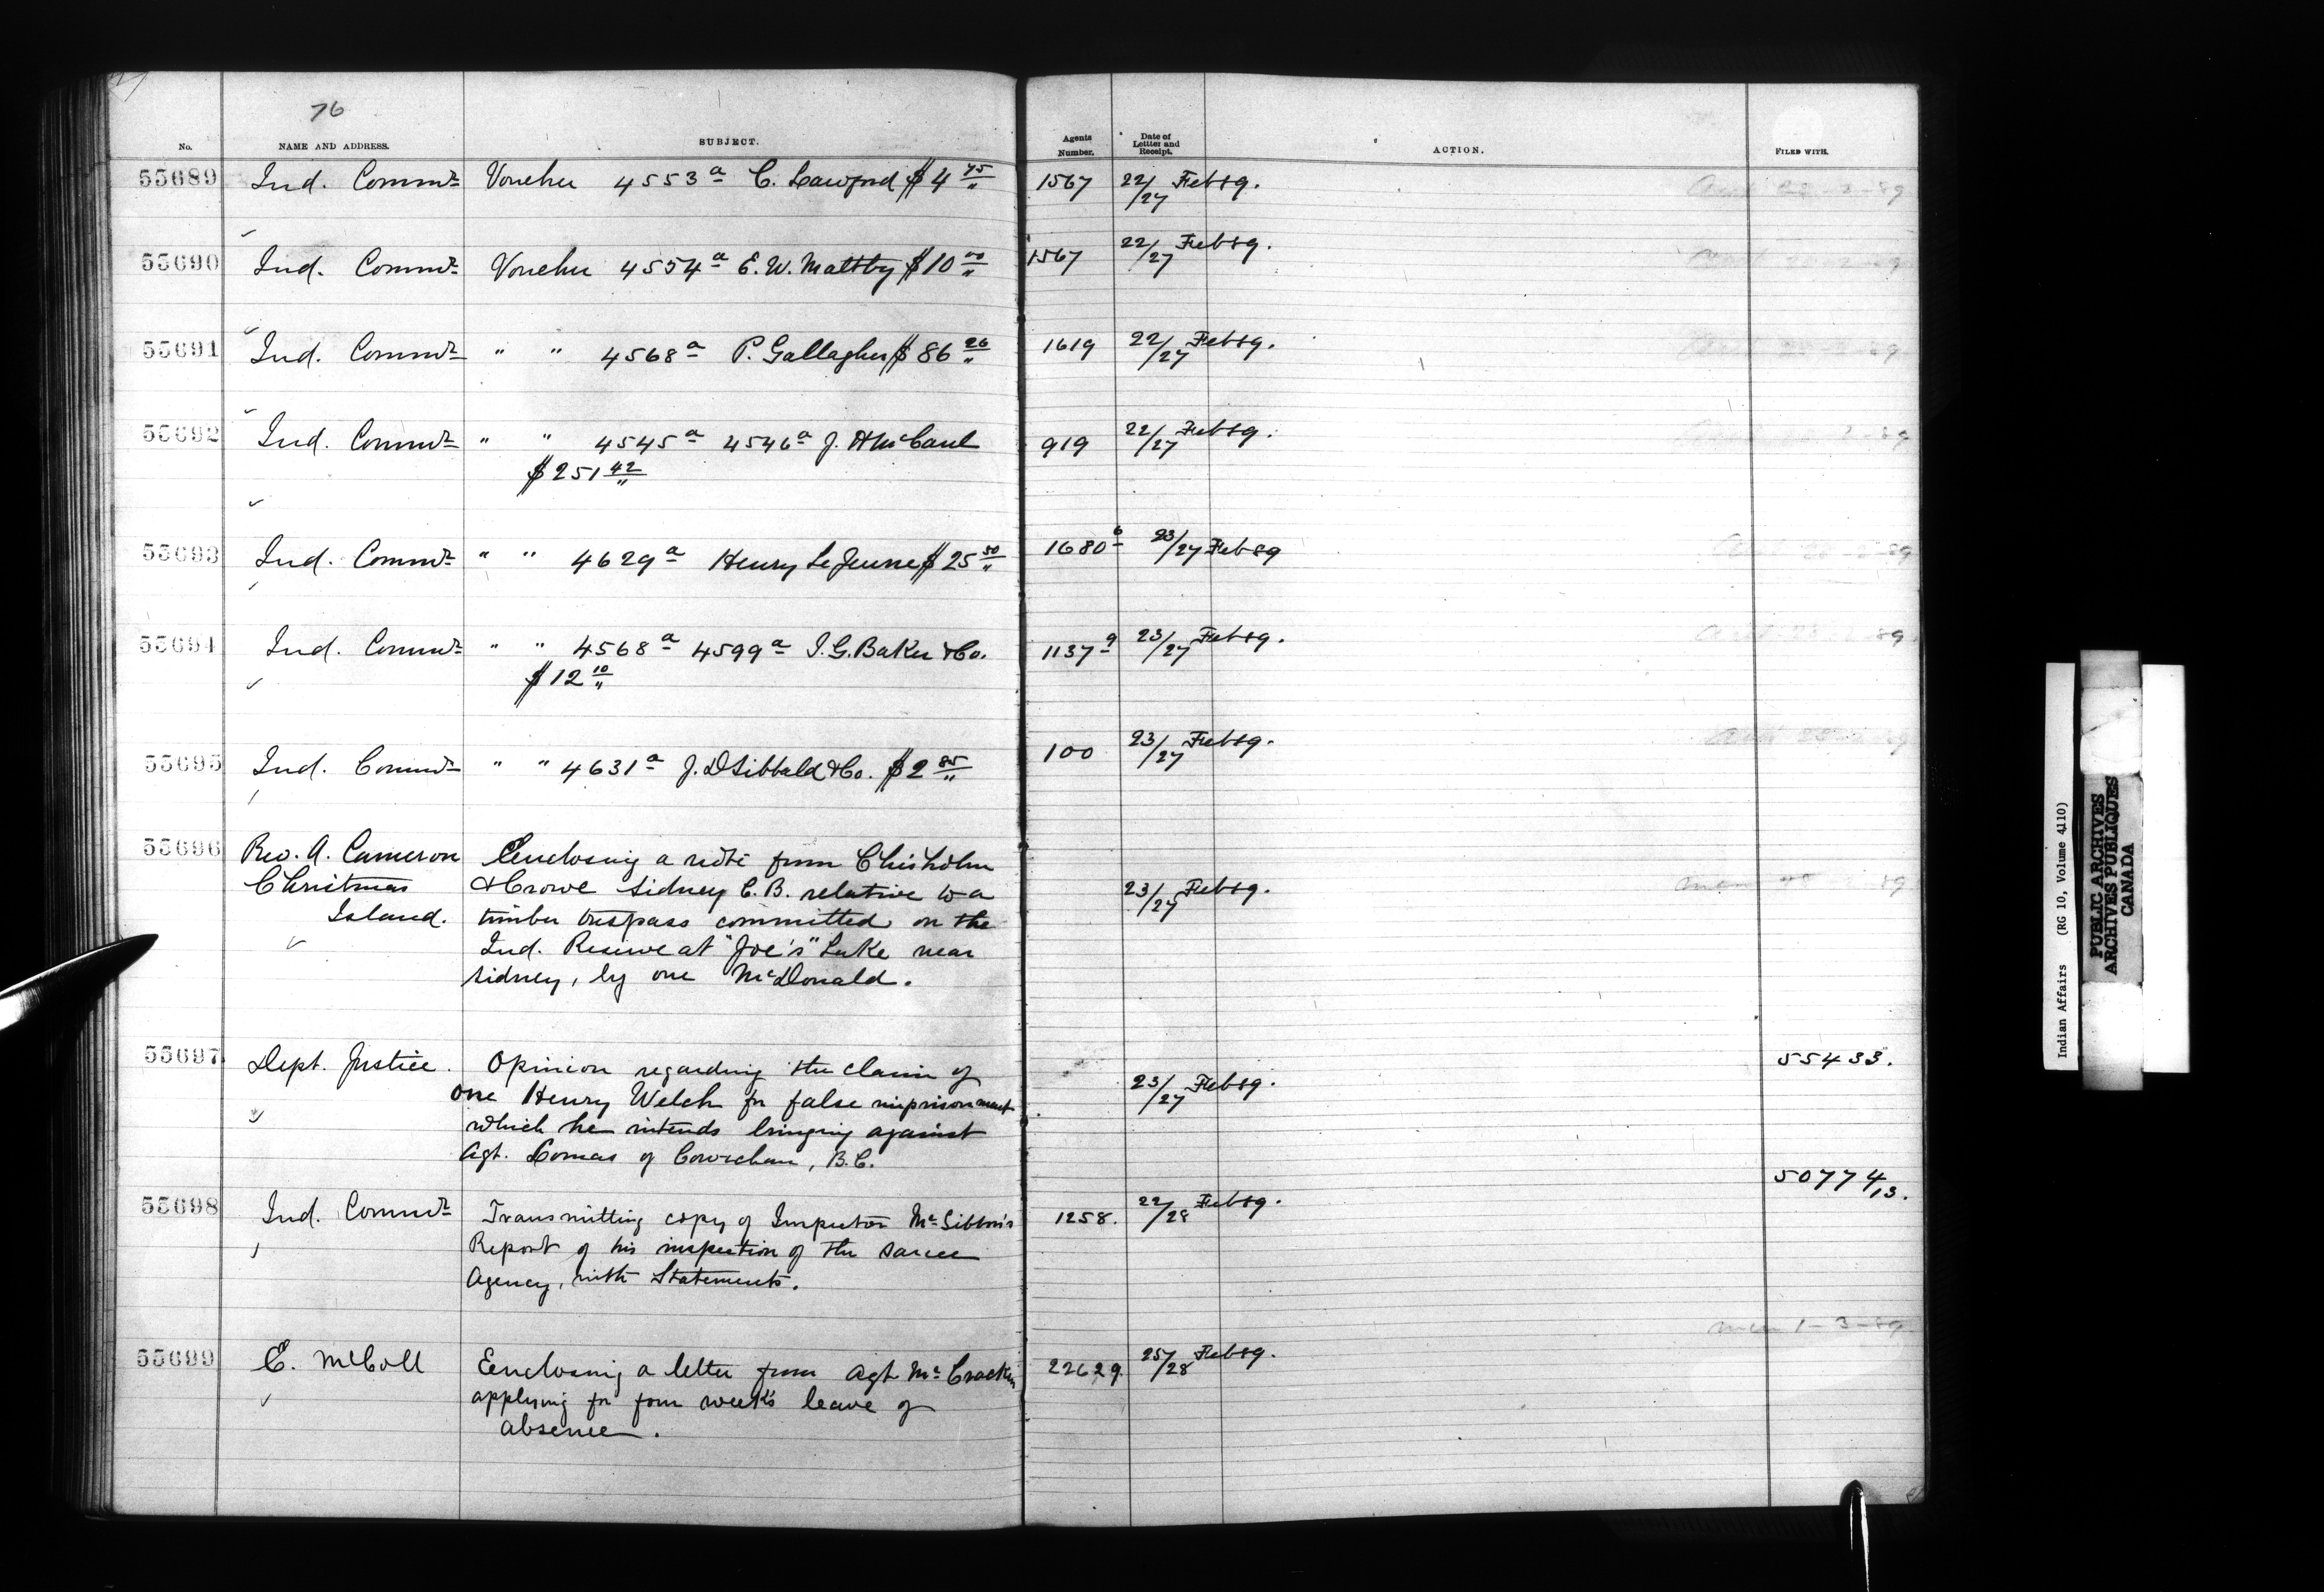 76
No. NAME AND ADDRESS. SUBJECT. Agents Number. Date of Lettter and Receipt. ACTION. FILED WITH.
55689 Ind. Commr Voucher 4553a C. Lawford $4 75/" 1567 22/27 Feb 89.
55690 Ind. Commr Voucher 4554a E. W. Maltby $10 00/" 1567 22/27 Feb 89.
55691 Ind. Commr " " 4568a P. Gallagher $86 26/" 1619 22/27 Feb 89.
55692 Ind. Commr " " 4545a 4546a J. A McCaul 919 22/27 Feb 89.
$251 42/"
55693 Ind. Commr " " 4629a Henry Le Jeune $25 50/" 1680 6 23/27 Feb 89
55694 Ind. Commr " " 4568a 4599a I. G. Baker & Co. 1137 9 23/27 Feb 89.
$12 10/"
55695 Ind. Commr " " 4631a J. D Sibbald & Co. $2 85/" 100 23/27 Feb 89.
55696 Rev. A. Cameron Eenclosing a note from Chisholm
Christmas & Crowe Sidney C. B. relative to a 23/27 Feb 89.
Island. timber trespass committed on the
Ind. Reserve at "Joe's" Lake near
Sidney, by one McDonald.
55697 Dept. Justice. Opinion regarding the claim of 55433.
one Henry Welch for false imprisonment 23/27 Feb 89.
which he intends bringing against
Agt. Lomas of Cowichan, B.C.
50774/13.
55698 Ind. Commr Transmitting copy of Inspector McGibbon's 1258. 22/28 Feb 89.
Report of his inspection of the Sarcee
Agency, with Statements.
1-3-89
55699 E. McColl Eenclosing a letter from Agt McCracken 22629. 25/28 Feb 89.
applying for four week's leave of
absence.
Indian Affairs (RG 10, Volume 4110)
PUBLIC ARCHIVES
ARCHIVES PUBLIQUES
CANADA